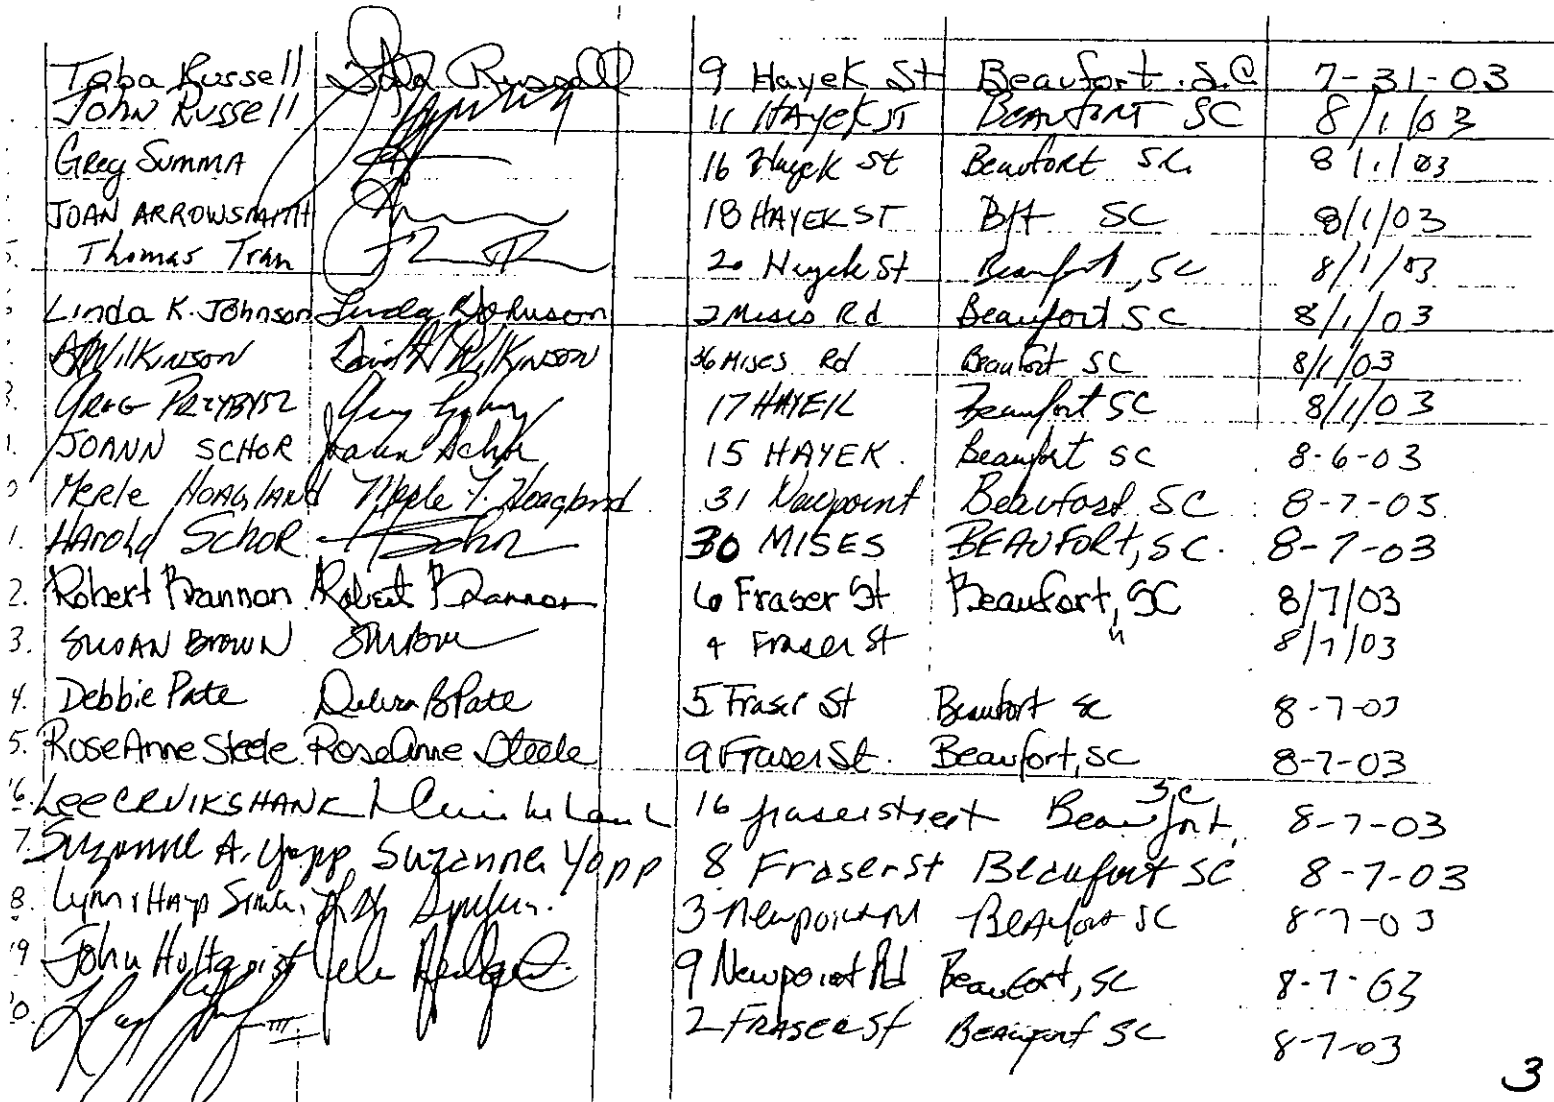 Toba Russell Toba Russell 9 Hayek St Beaufort. S.C 7-31-03
John Russell 11 HAYEK ST BEAUFORT SC 8/1/03
Greg SUMMA 16 Hayek St Beaufort SC. 8/1/03
JOAN ARROWSMITH 18 HAYEK ST Bft SC 8/1/03
5. Thomas Tran 20 Hayek St Beaufort, SC 8/1/03
Linda K. Johnson Linda K Johnson 2 Mises Rd Beaufort SC 8/1/03
WILKINSON David H WILKINSON 36 Mises Rd Beaufort SC 8/1/03
GREG PRZYBYSZ 17 HAYEK Beaufort SC 8/1/03
JOANN SCHOR Joann Schor 15 HAYEK. Beaufort SC 8-6-03
Merle HOAGLAND Merle Y. Hoagland 31 Newpoint Beaufort SC 8-7-03
1. HArold SCHOR 30 MISES BEAUFORT, SC. 8-7-03
2. Robert Brannon Robert Brannon 6 Fraser St Beaufort, SC 8/7/03
3. SUSAN BROWN 4 Fraser St " 8/7/03
4. Debbie Pate Debra B Pate 5 Fraser St Beaufort SC 8-7-03
5. RoseAnne Steele RoseAnne Steele 9 Fraser St. Beaufort, SC 8-7-03
6. Lee CRUIKSHANK 16 fraser street Beaufort, S.C 8-7-03
7. Suzanne A. Yapp Suzanne Yapp 8 Fraser St Beaufort SC 8-7-03
8. Lynn 3 Newpoint Beaufort SC 8-7-03
9 John Hultquist 9 Newpoint Rd Beaufort, SC 8-7-03
0. III 2 FRASER St Beaufort SC 8-7-03
3